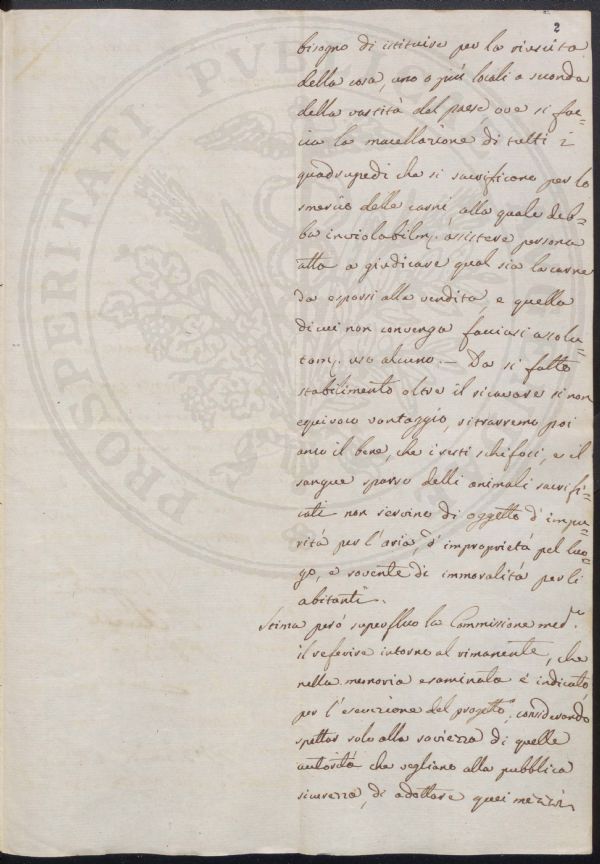 2
bisogno di istituire per la riuscita
della cosa, uno o più locali a seconda
della vastità del paese ove si fac=
cia la macellazione di tutti i
quadrupedi che si sacrificono per lo
smercio delle carni, alla quale deb=
ba inviolabilm. assistere persona
atta a giudicare qual sia la carne
da esporsi alla vendita, e quella
di cui non convenga facciasi assolu=
tam. uso alcuno. — Da si fatto
stabilimento oltre il ricavare si non
equivoco vantaggio, ritrarremo poi
anco il bene, che i resti schifosi, e il
sangue sparso delli animali sacrifi=
cati non servino di oggetto d'impu=
rità per l'aria, d'improprietà pel luo=
go, e sovente di immoralità per li
abitanti.
Stima però superfluo la Commissione med.ª
il referire intorno al rimanente, che
nella memoria esaminata è indicato,
per l'esecuzione del progetto, considerando
spettar solo alla saviezza di quelle
autorità che vegliano alla pubblica
sicurezza, di adottare quei mezzi,
PROSPERITATI PUBLICAE